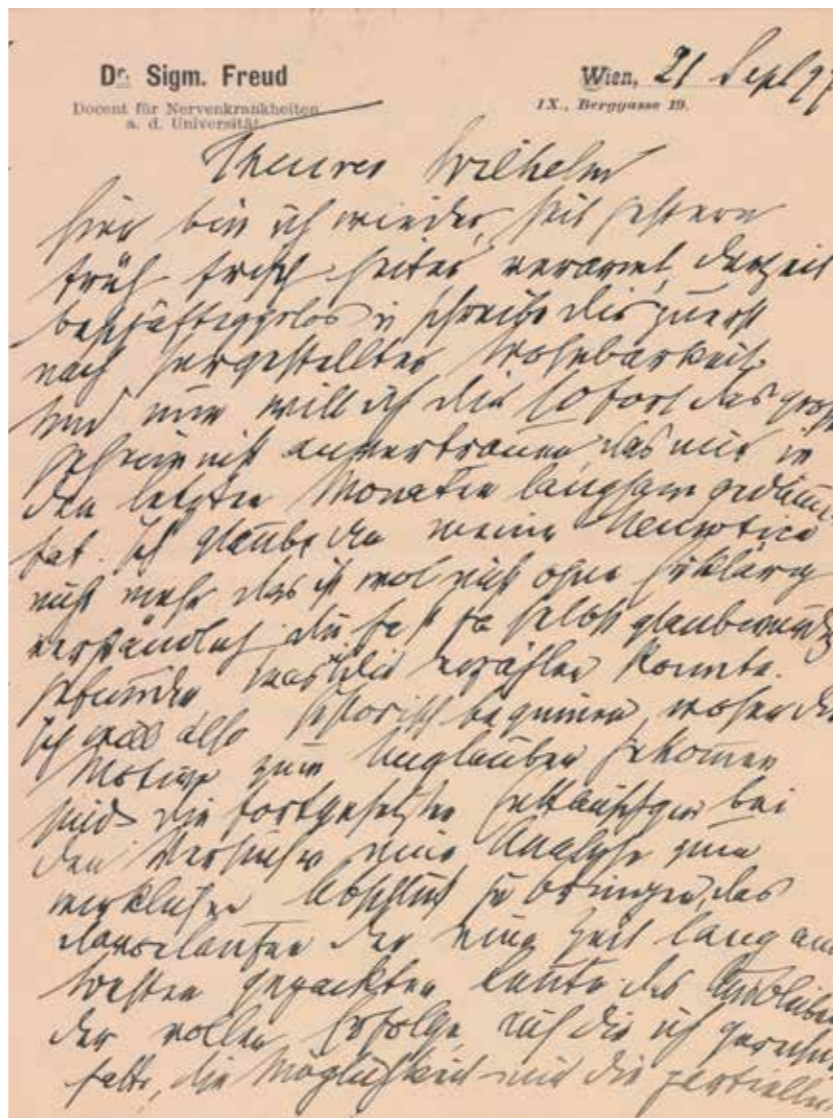 Dr. Sigm. Freud
Docent für Nervenkrankheiten
a. d. Universität.
Wien, 21 Sept 97
IX., Berggasse 19.
Theurer Wilhelm
hier bin ich wieder, seit gestern
früh frisch heiter verarmt, derzeit
beschäftiggslos u schreibe dir zuerst
nach hergestellter Wohnbarkeit.
Und nun will ich dir sofort das große
Geheimniß anvertrauen das mir in
den letzten Monaten langsam gedämmert
hat. Ich glaube an meine Neurotica
nicht mehr das ist wol nicht ohne Erklärg
verständlich du hast ja selbst glaubwürdig
gefunden was ich dir erzählen konnte.
Ich will also historisch beginnen, woher die
Motive zum Unglauben gekommen
sind die fortgesetzten Enttäuschgen bei
den Versuchen eine Analyse zum
wirklichen Abschluß zu bringen, das
davonlaufen der eine Zeit lang am
besten gepackten Leute das Ausbleiben
der vollen Erfolge auf die ich gerechnet
hatte, die Möglichkeit mir die partiellen